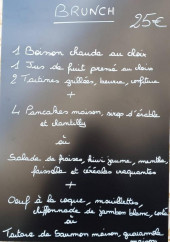 BRUNCH
25€
1 Boisson chaude au choix
1 Jus de fruit pressé au choix
2 Tartines grillées, beurre, confiture
+
4 Pancakes maison, sirop d'érable
et chantilly
où
Salade de fraise, kiwi jaune, menthe,
faisselle et céréales craquantes
+
Oeuf à la coque, mouillettes,
chiffonnade de jambon blanc,
où
Tartare de Saumon maison, guacamole
maison